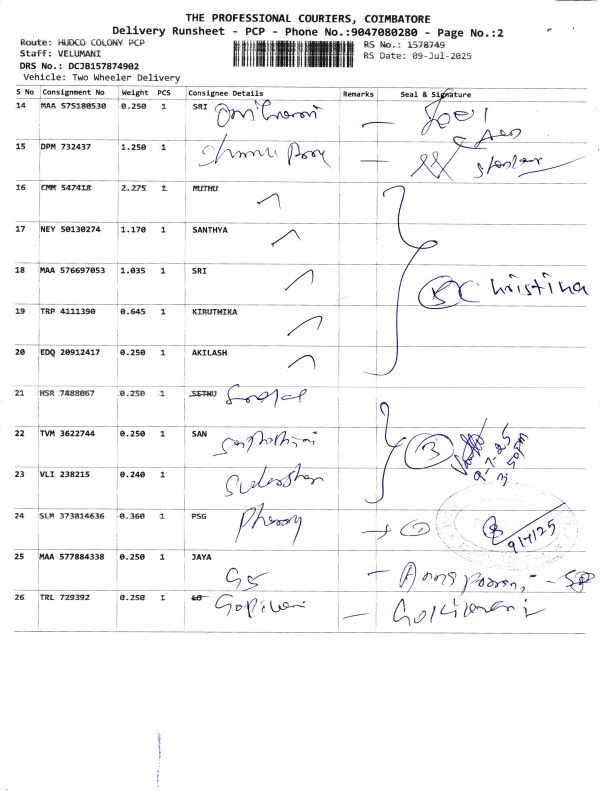 THE PROFESSIONAL COURIERS, COIMBATORE
Delivery Runsheet - PCP - Phone No.:9047080280 - Page No.:2
Route: HUDCO COLONY PCP
RS No.: 1578749
Staff: VELUMANI
RS Date: 09-Jul-2025
DRS No.: DCJB157874902
Vehicle: Two Wheeler Delivery
S No Consignment No Weight PCS Consignee Details Remarks Seal & Signature
14 MAA 575180530 0.250 1 SRI
15 DPM 732437 1.250 1
16 CMM 547418 2.275 1 MUTHU
17 NEY 50130274 1.170 1 SANTHYA
18 MAA 576697053 1.035 1 SRI
5 Christina
19 TRP 4111390 0.645 1 KIRUTHIKA
20 EDQ 20912417 0.250 1 AKILASH
21 HSR 7488067 0.250 1 SETHU
22 TVM 3622744 0.250 1 SAN
3
9-7-25
3.50pm
23 VLI 238215 0.240 1 Sudarshan
24 SLM 373814636 0.360 1 PSG
1
9/7/25
25 MAA 577884338 0.250 1 JAYA
26 TRL 729392 0.250 1 Gokilavani Gokilavani